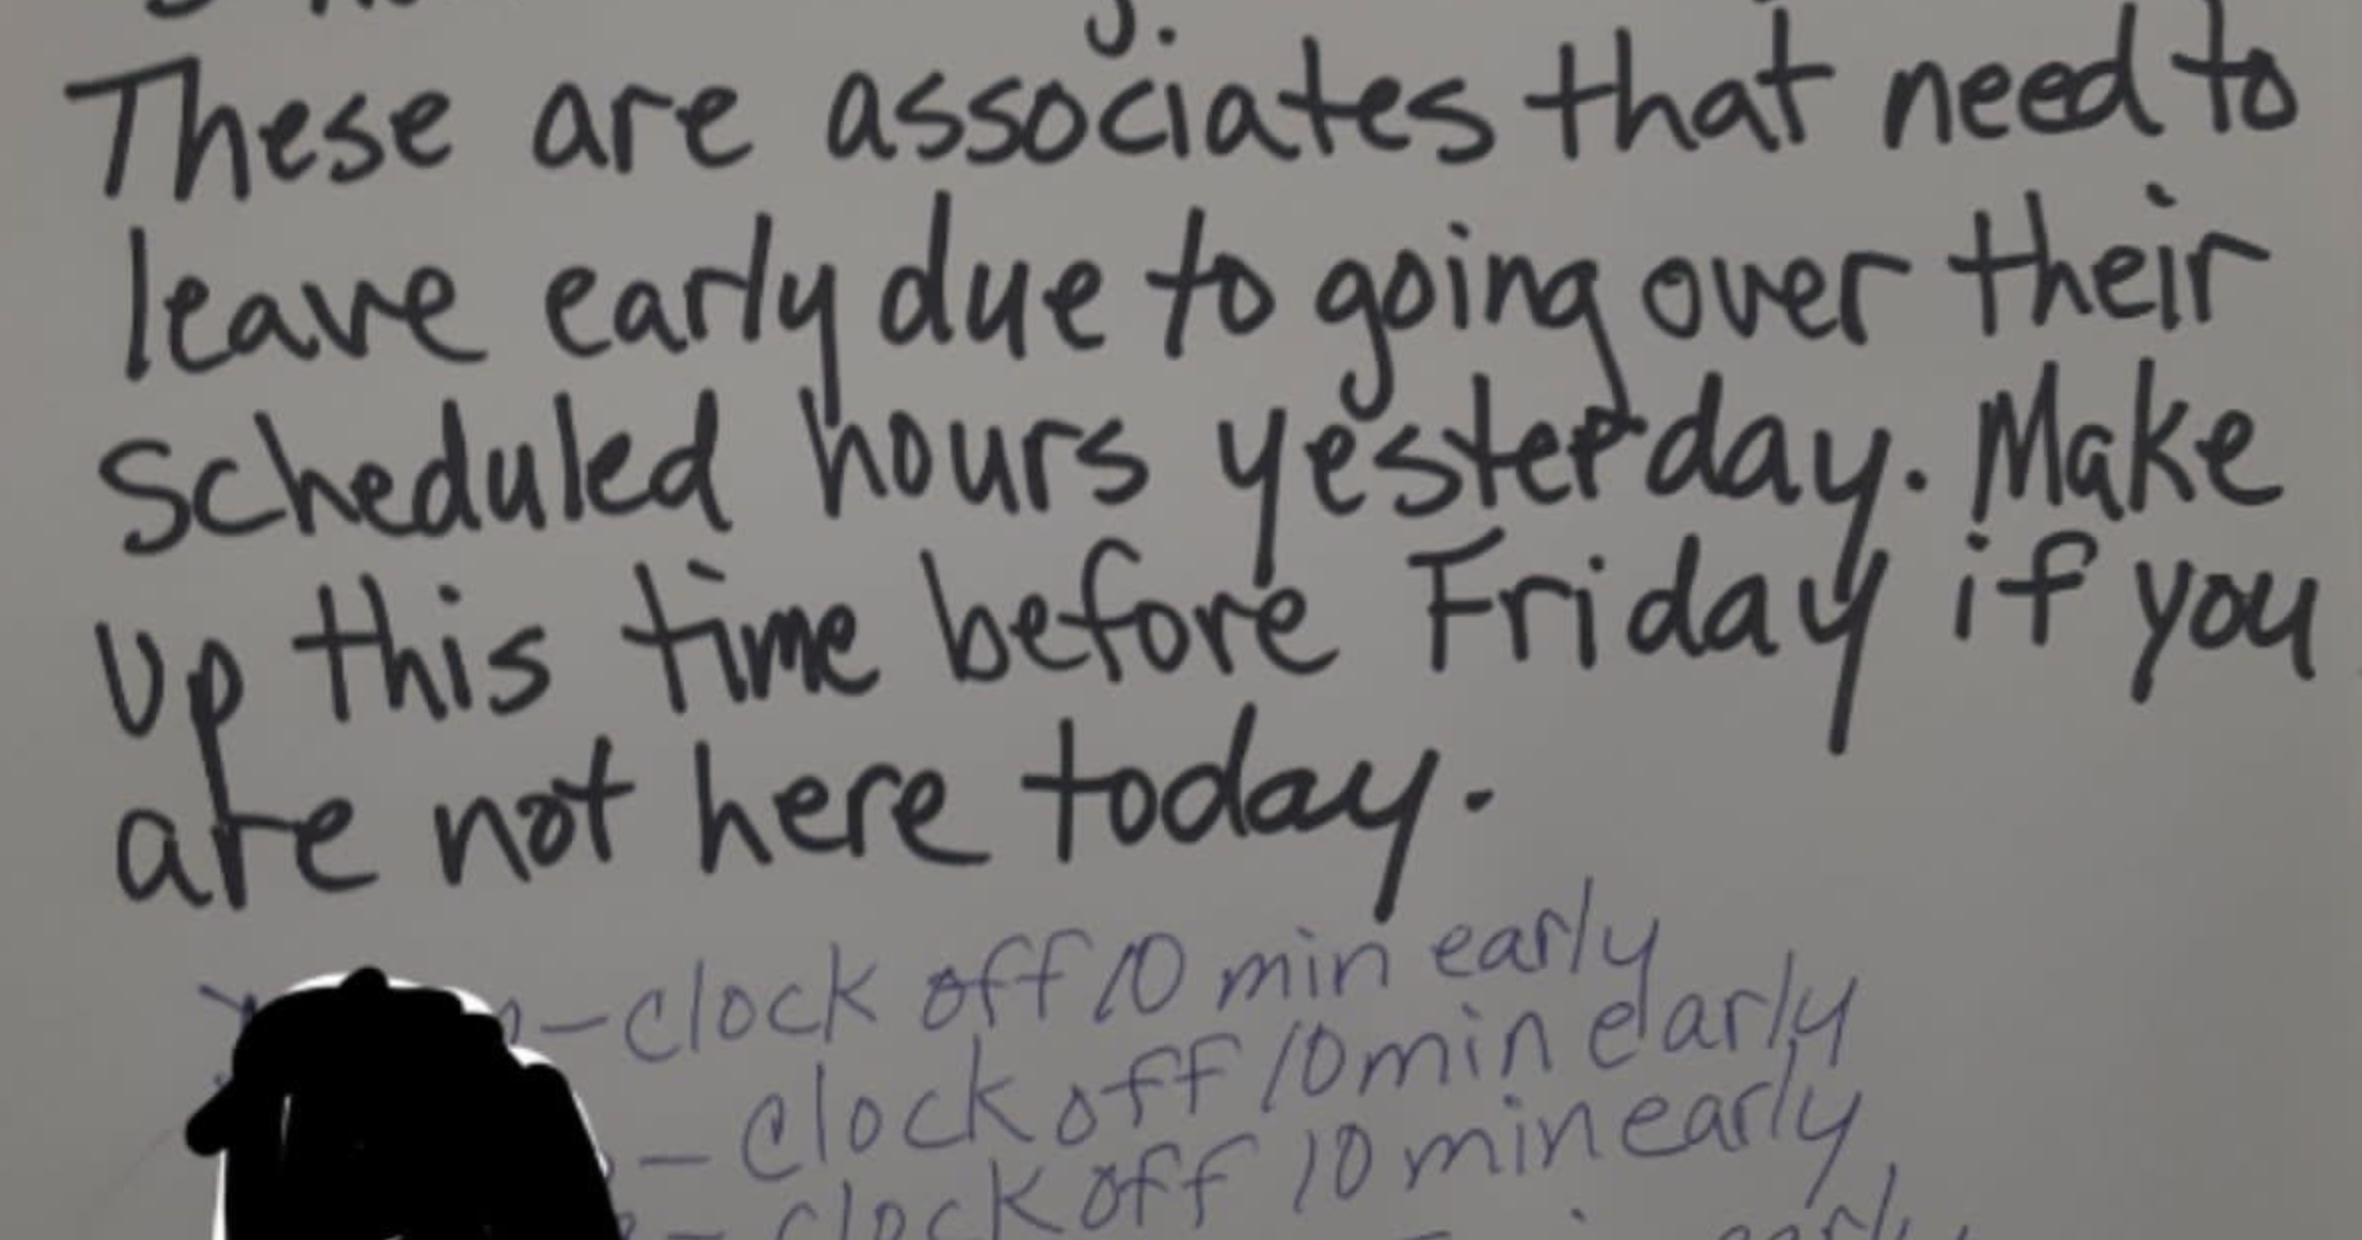 These are associates that need to
leave early due to going over their
scheduled hours yesterday. Make
up this time before Friday if you
are not here today.
-clock off 10 min early
- clock off 10 min early
- clock off 10 min early
early